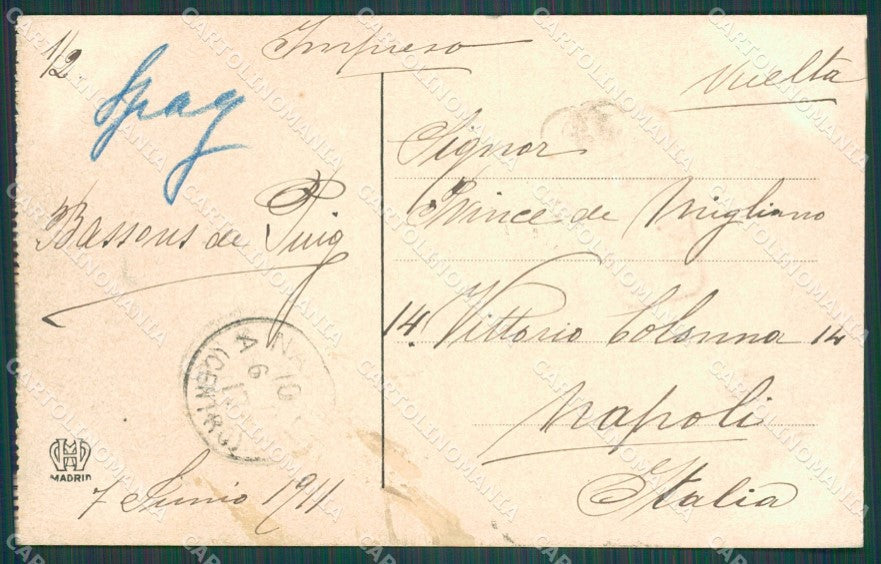 1/2
Impreso
Vuelta
Spag
Signor
Prince de Migliano
Bassous de Puig
14. Vittorio Colonna 14
Napoli
Italia
7 Junio 1911
NA
10
6
A
(CENTRO)
MADRID
CARTOLINOMANIA